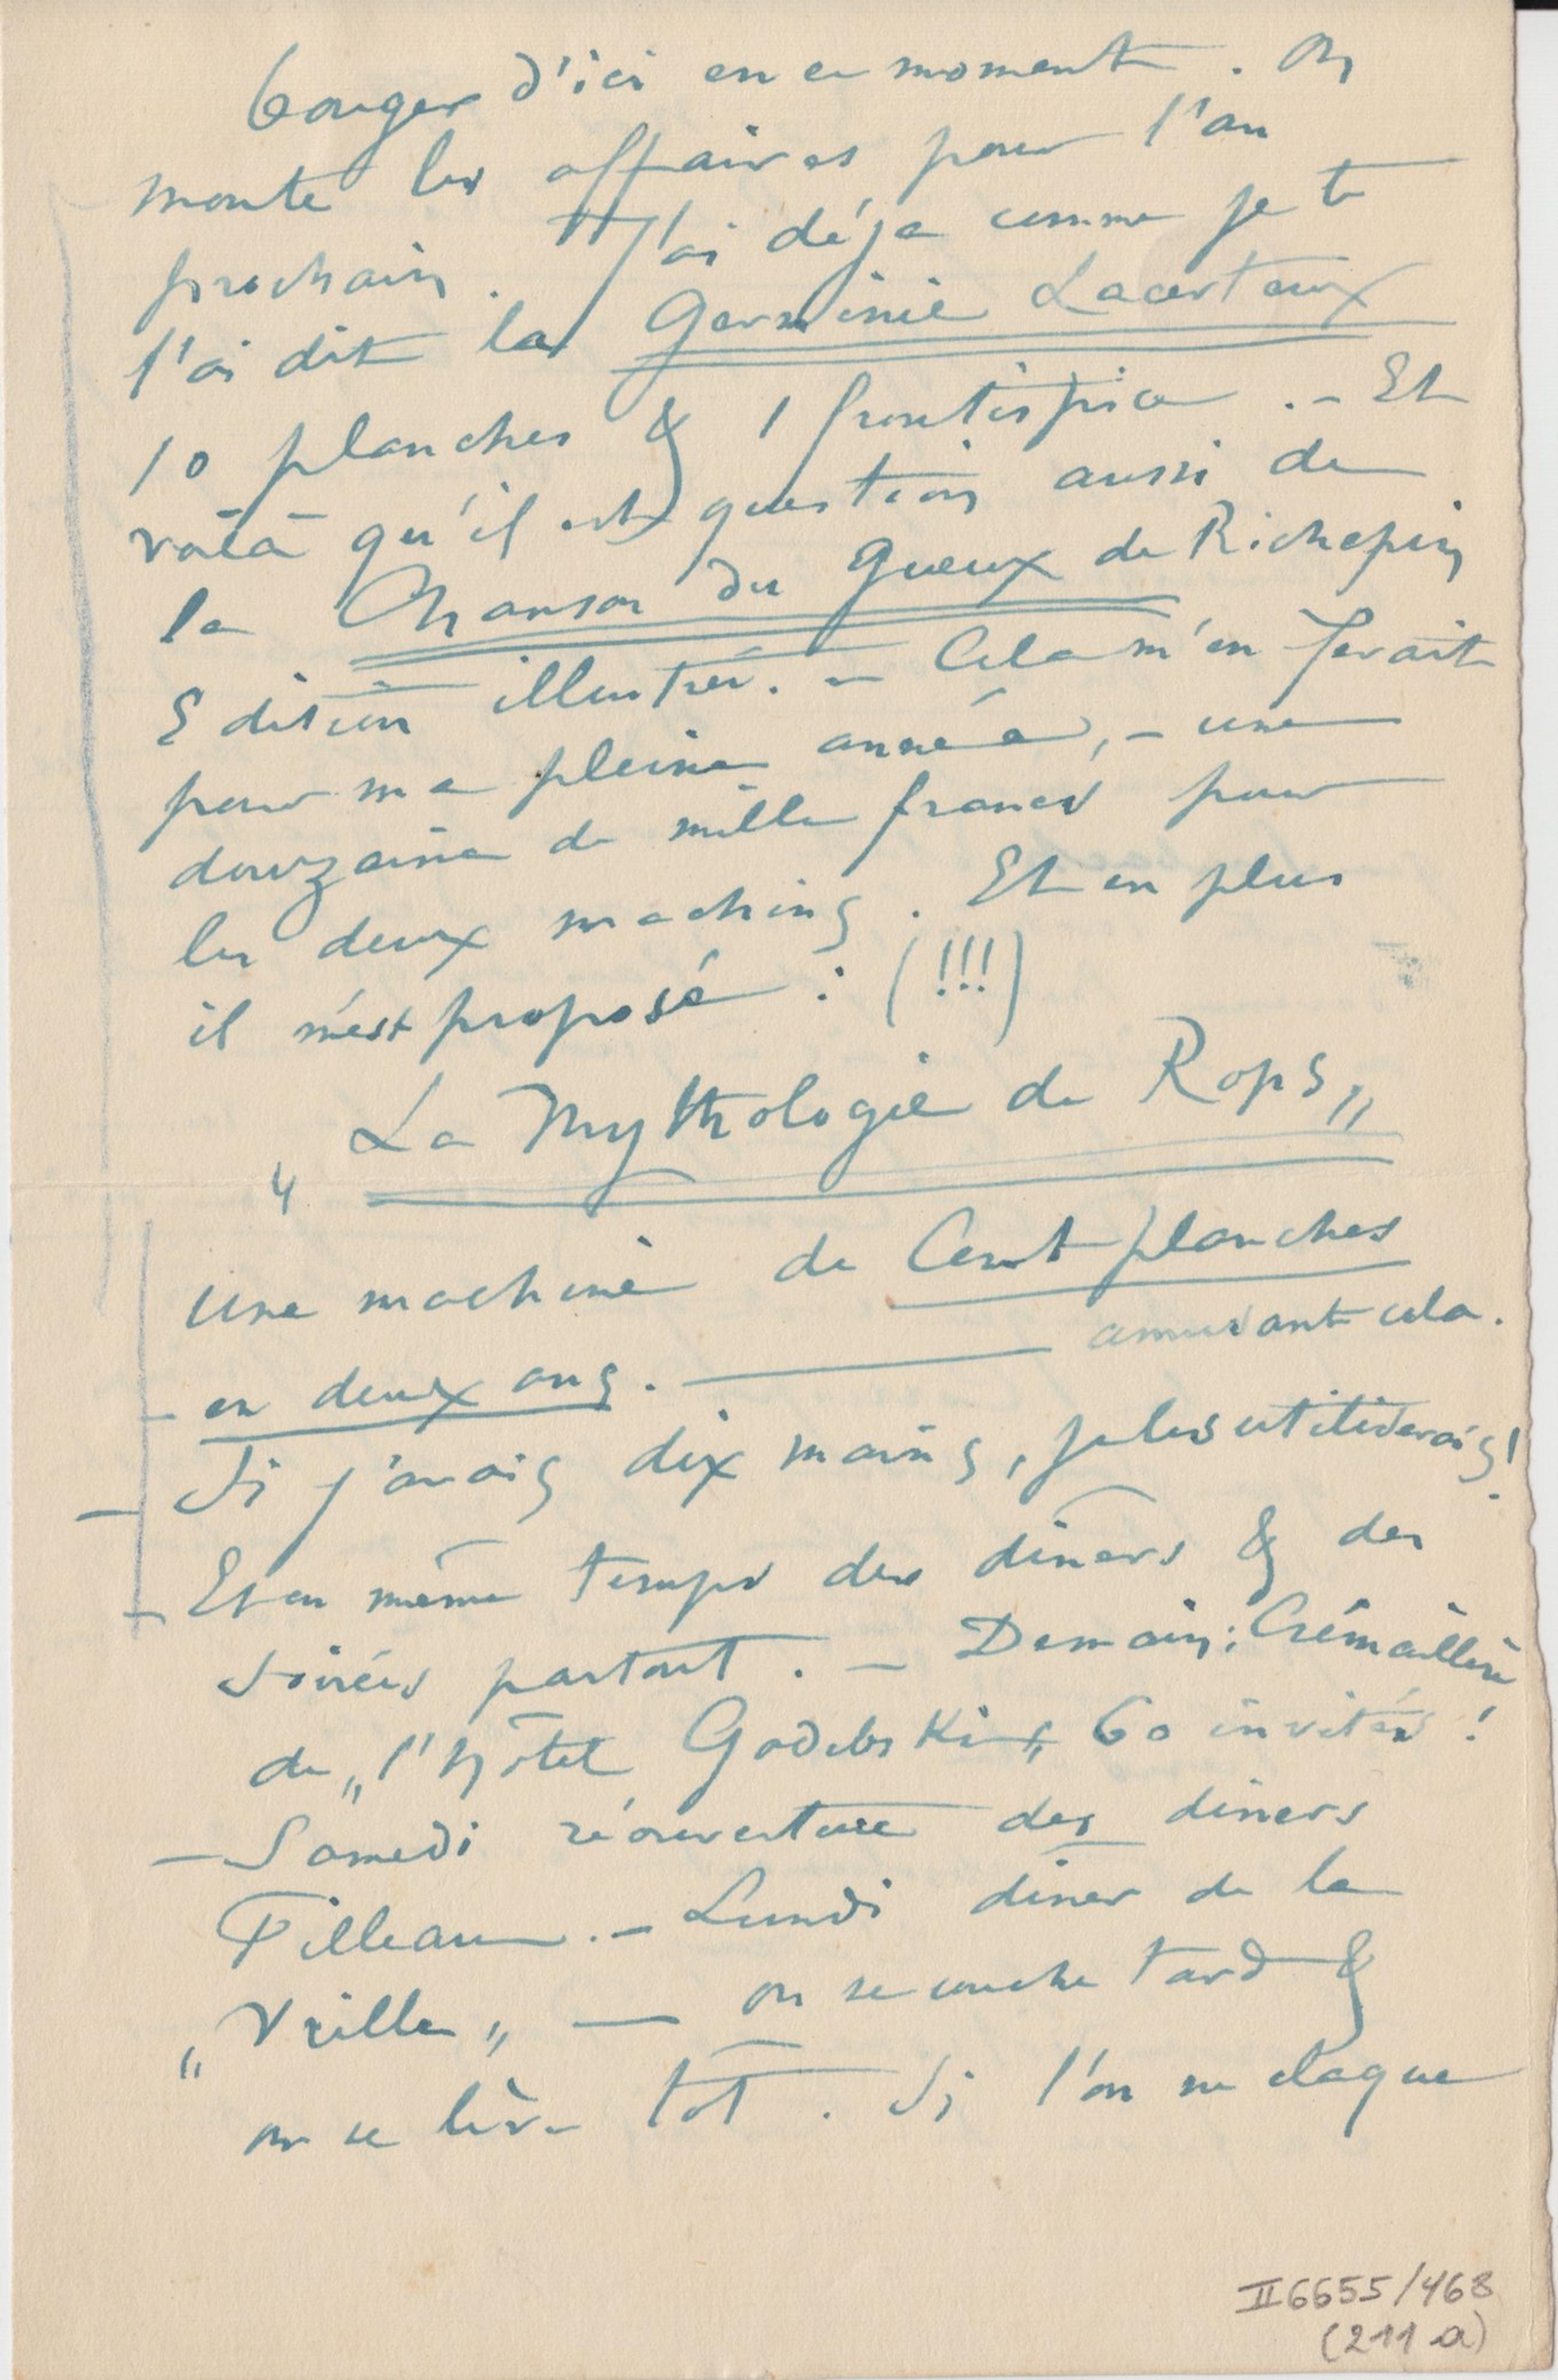 bouger d'ici en ce moment. On
monte les affaires pour l'an
prochain. J'ai déja comme je te
l'ai dit la Germinie Lacerteux
10 planches & 1 frontispice. – Et
voilà qu'il est question aussi de
la Chanson du Gueux de Richepin
Edition illustrée. – Cela m'en ferait
pour ma pleine année, – une
douzaine de mille francs pour
les deux machins. Et en plus
il m'est proposé : (!!!)
„La Mythologie de Rops„
Une machine de Cent planches
en deux ans. — amusant cela.
– Si j'avais dix mains, je les utiliserais!
– Et en même temps des dîners & des
soirées partout. – Demain: Crémaillère
de „l'hôtel Godebski„ 60 invités!
– Samedi réouverture des diners
Filleau. – Lundi dîner de la
„Vrille„ — on se couche tard &
on se lève tôt. Si l'on ne claque
II 6655/468
(211 a)